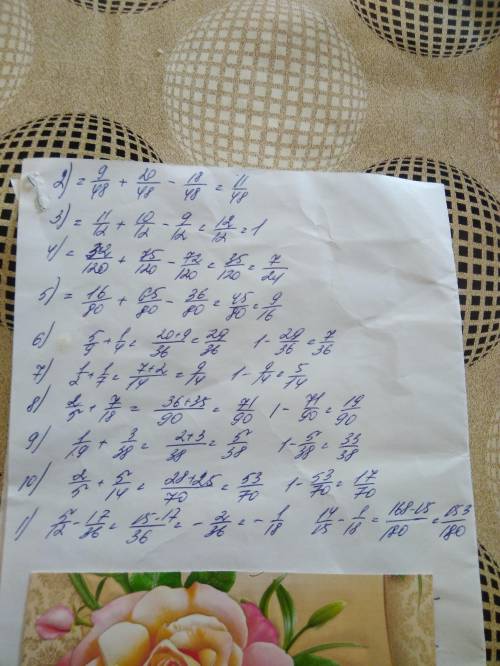 2) = 9/48 + 20/48 - 18/48 = 11/48
3) = 11/12 + 10/12 - 9/12 = 12/12 = 1
4) = 32/120 + 75/120 - 72/120 = 35/120 = 7/24
5) = 16/80 + 65/80 - 36/80 = 45/80 = 9/16
6) 5/9 + 1/4 = 20+9/36 = 29/36 1 - 29/36 = 7/36
7) 1/2 + 1/7 = 7+2/14 = 9/14 1 - 9/14 = 5/14
8) 2/5 + 7/18 = 36+35/90 = 71/90 1 - 71/90 = 19/90
9) 1/19 + 3/38 = 2+3/38 = 5/38 1 - 5/38 = 33/38
10) 2/5 + 5/14 = 28+25/70 = 53/70 1 - 53/70 = 17/70
1) 5/12 - 17/36 = 15-17/36 = - 2/36 = - 1/18 14/15 - 1/18 = 168-15/180 = 153/180